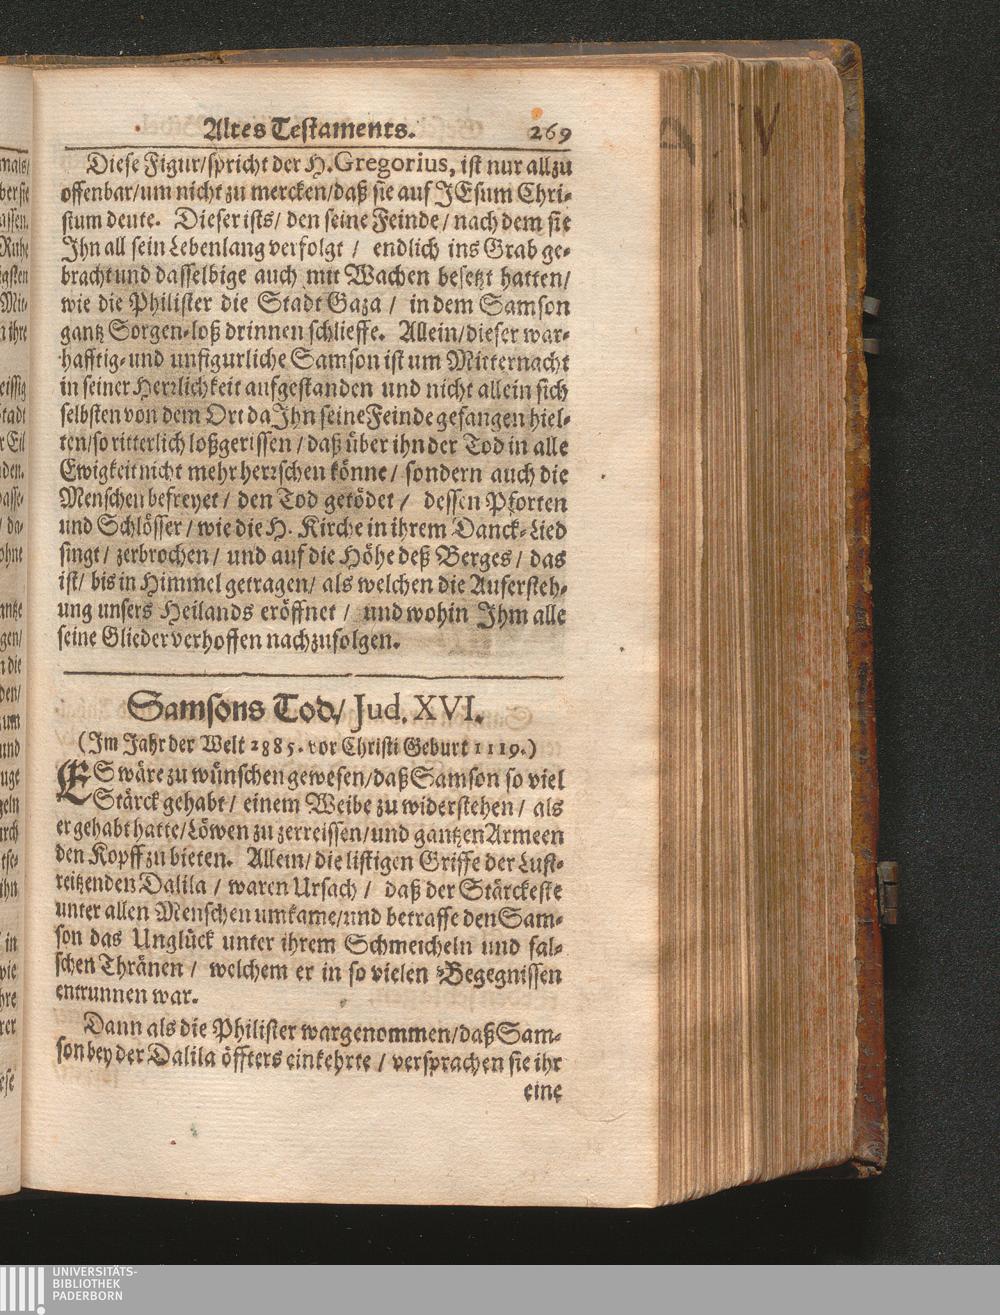 Altes Testaments. 269
Diese Figur/spricht der H. Gregorius, ist nur allzu
offenbar/um nicht zu mercken/daß sie auf JEsum Chri-
stum deute. Dieser ists/ den seine Feinde/ nach dem sie
Ihn all sein Lebenlang verfolgt/ endlich ins Grab ge-
bracht und dasselbige auch mit Wachen besetzt hatten/
wie die Philister die Stadt Gaza/ in dem Samson
gantz Sorgen-loß drinnen schlieffe. Allein/dieser war-
hafftig- und unfigurliche Samson ist um Mitternacht
in seiner Herrlichkeit aufgestanden und nicht allein sich
selbsten von dem Ort da Ihn seine Feinde gefangen hiel-
ten/so ritterlich loßgerissen/ daß über ihn der Tod in alle
Ewigkeit nicht mehr herrschen könne/ sondern auch die
Menschen befreyet/ den Tod getödet/ dessen Pforten
und Schlösser/ wie die H. Kirche in ihrem Danck-Lied
singt/ zerbrochen/ und auf die Höhe deß Berges/ das
ist/ bis in Himmel getragen/ als welchen die Aufersteh-
ung unsers Heilands eröffnet/ und wohin Ihm alle
seine Glieder verhoffen nachzufolgen.
Samsons Tod/ Jud. XVI.
(Im Jahr der Welt 2885. vor Christi Geburt 1119.)
ES wäre zu wünschen gewesen/daß Samson so viel
Stärck gehabt/ einem Weibe zu widerstehen/ als
er gehabt hatte/Löwen zu zerreissen/und gantzen Armeen
den Kopff zu bieten. Allein/ die listigen Griffe der Lust-
reitzenden Dalila/ waren Ursach/ daß der Stärckeste
unter allen Menschen umkame/und betraffe den Sam-
son das Unglück unter ihrem Schmeicheln und fal-
schen Thränen/ welchem er in so vielen Begegnissen
entrunnen war.
Dann als die Philister wargenommen/daß Sam-
son bey der Dalila öffters einkehrte/ versprachen sie ihr
eine
UNIVERSITÄTS-
BIBLIOTHEK
PADERBORN